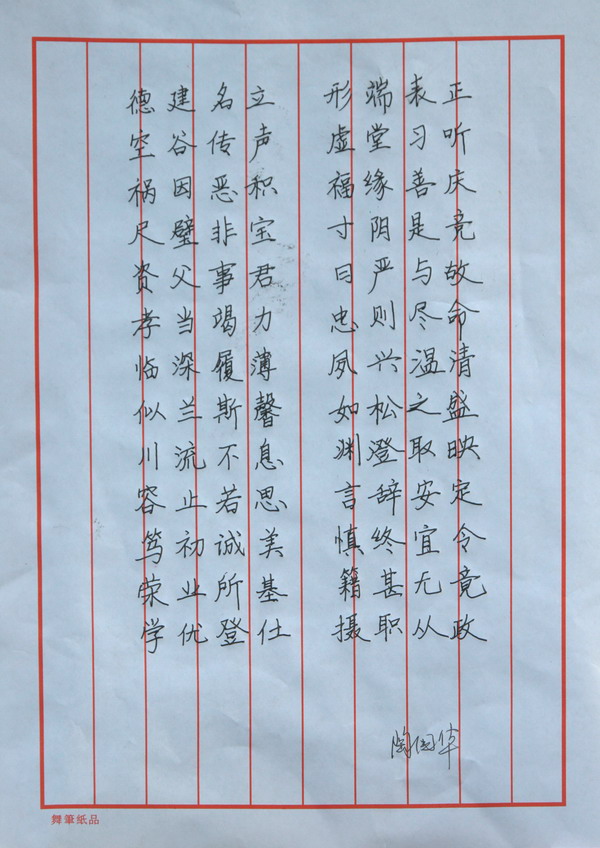 德建名立 形端表正
空谷传声 虚堂习听
祸因恶积 福缘善庆
尺璧非宝 寸阴是竞
资父事君 曰严与故
孝当竭力 忠则尽命
临深履薄 夙兴温清
似兰斯馨 如松之盛
川流不息 渊澄取映
容止若思 言辞安定
笃初诚美 慎终宜令
荣业所基 籍甚无竟
学优登仕 摄职从政
陶国华
舞筆纸品